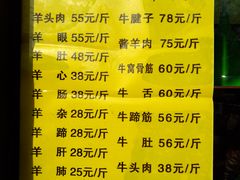 羊头肉 55元/斤
羊 眼 55元/斤
羊 肚 48元/斤
羊 心 38元/斤
羊 肠 38元/斤
羊 杂 28元/斤
羊 蹄 28元/斤
羊 肝 28元/斤
羊 肺 25元/斤
牛腱子 78元/斤
酱羊肉 75元/斤
牛窝骨筋 60元/斤
牛 舌 60元/斤
牛蹄筋 56元/斤
牛 肚 56元/斤
牛头肉 38元/斤